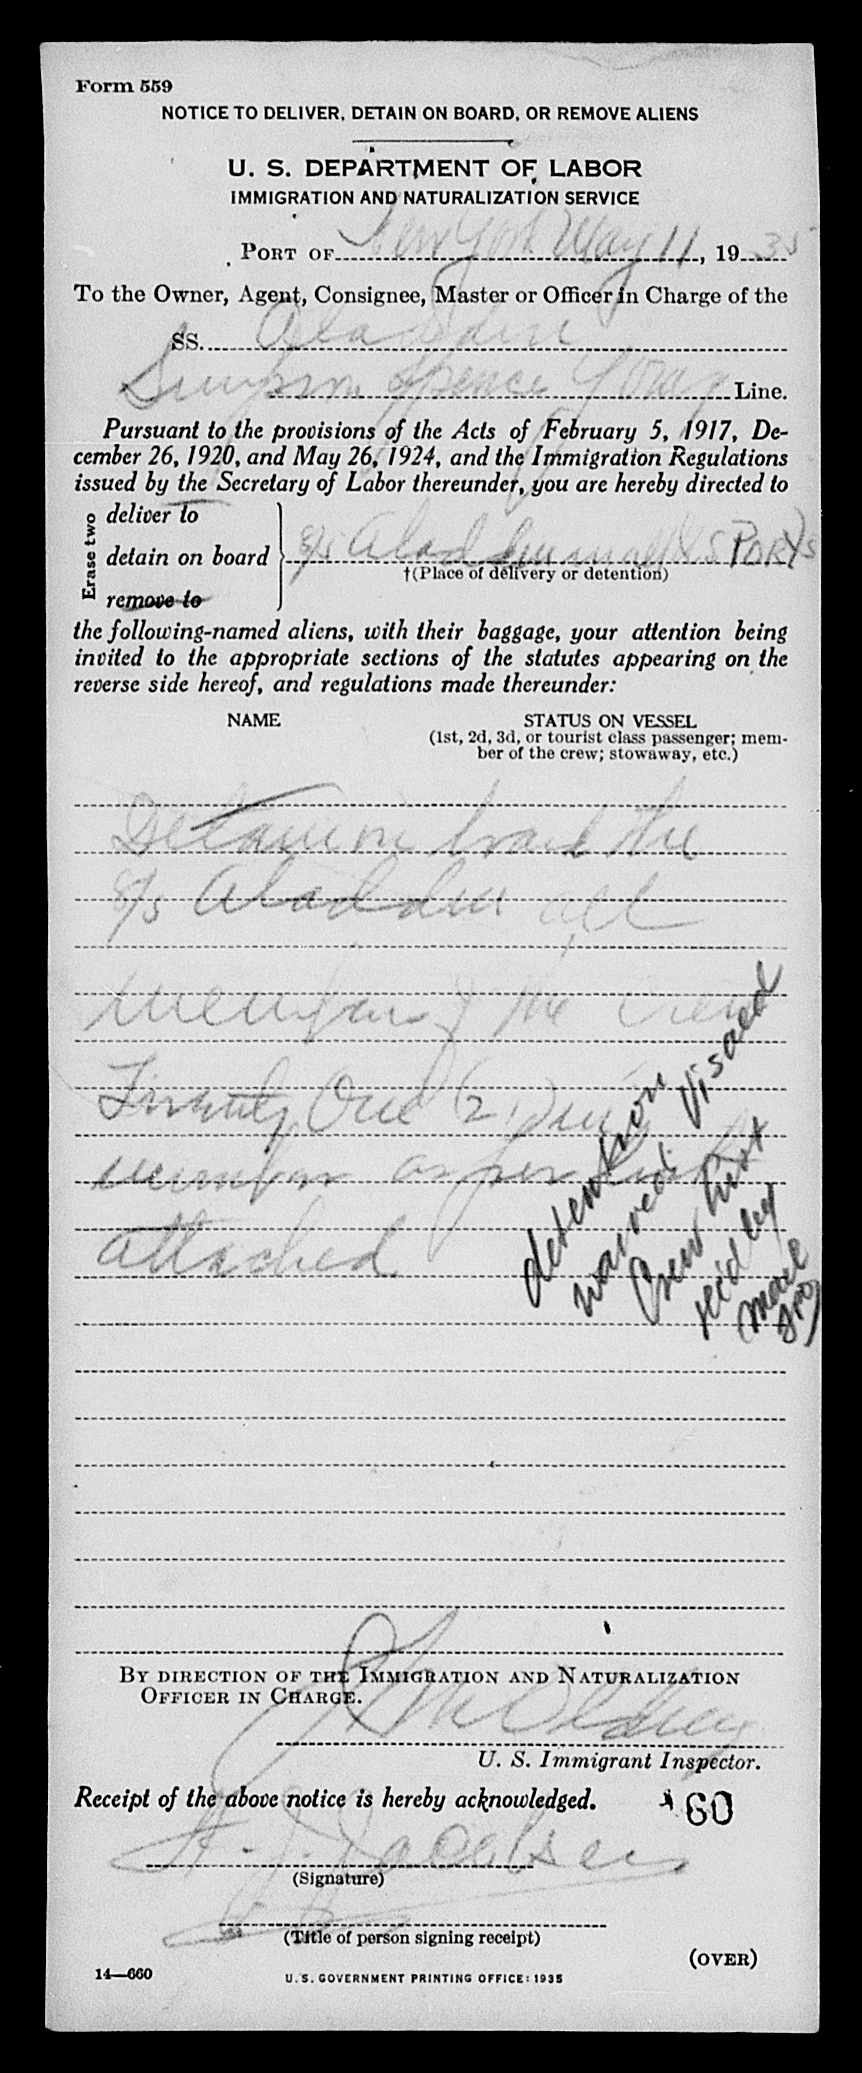 Form 559
NOTICE TO DELIVER, DETAIN ON BOARD, OR REMOVE ALIENS
U. S. DEPARTMENT OF LABOR
IMMIGRATION AND NATURALIZATION SERVICE
PORT OF New York May 11, 1935
To the Owner, Agent, Consignee, Master or Officer in Charge of the
SS. Aladdin
Simpson Spence Young Line.
Pursuant to the provisions of the Acts of February 5, 1917, De-
cember 26, 1920, and May 26, 1924, and the Immigration Regulations
issued by the Secretary of Labor thereunder, you are hereby directed to
Erase two
deliver to
detain on board
remove to
S/S Aladdin in all U S PORTS
†(Place of delivery or detention)
the following-named aliens, with their baggage, your attention being
invited to the appropriate sections of the statutes appearing on the
reverse side hereof, and regulations made thereunder:
NAME STATUS ON VESSEL
(1st, 2d, 3d, or tourist class passenger; mem-
ber of the crew; stowaway, etc.)
Detain on board the
S/S Aladdin all
members of the crew
Twenty One (21) in
number as per list
attached
detention
waived Visaed
Crew List
rec'd by
mail
BY DIRECTION OF THE IMMIGRATION AND NATURALIZATION
OFFICER IN CHARGE.
U. S. Immigrant Inspector.
Receipt of the above notice is hereby acknowledged.
60
Jacobsen
(Signature)
(Title of person signing receipt)
(OVER)
14—660 U. S. GOVERNMENT PRINTING OFFICE: 1935